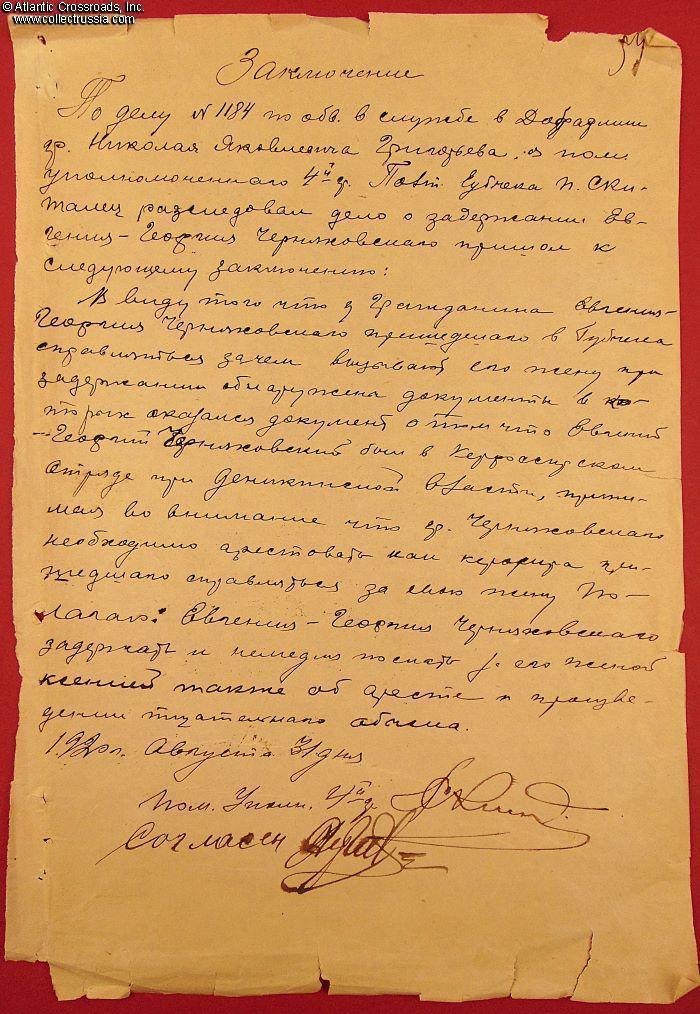 © Atlantic Crossroads, Inc.
www.collectrussia.com
Заключение
По делу № 1184 по обв. в службе в
гр. Николая Яковлевича Григорьева, я пом.
уполномоченного 4й гр. Губчека П. Ски-
талец разследовал дело о задержании Ев-
гения-Георгия Черняховскаго пришол к
следующему заключению:
В виду того что у Гражданина Евгения-
Георгия Черняховскаго пришедшаго в Губчека
справляться зачем вызывают его жену при
задержании обнаружена документы в ко-
торых оказался документ о том что Евгений
-Георгий Черняховский был в Керросирском
отряде при Деникинской власти, прини-
мая во внимание что гр. Черняховскаго
необходимо арестовать как
шедшаго справляться за свою жену По-
лагаю: Евгения-Георгия Черняховскаго
задержать и немедля послать его женой
Ксенией также об аресте и произве-
дении тщательнаго обыска.
1920 г. Августа 31 дня
Пом. Уполн. 4й гр.
Согласен